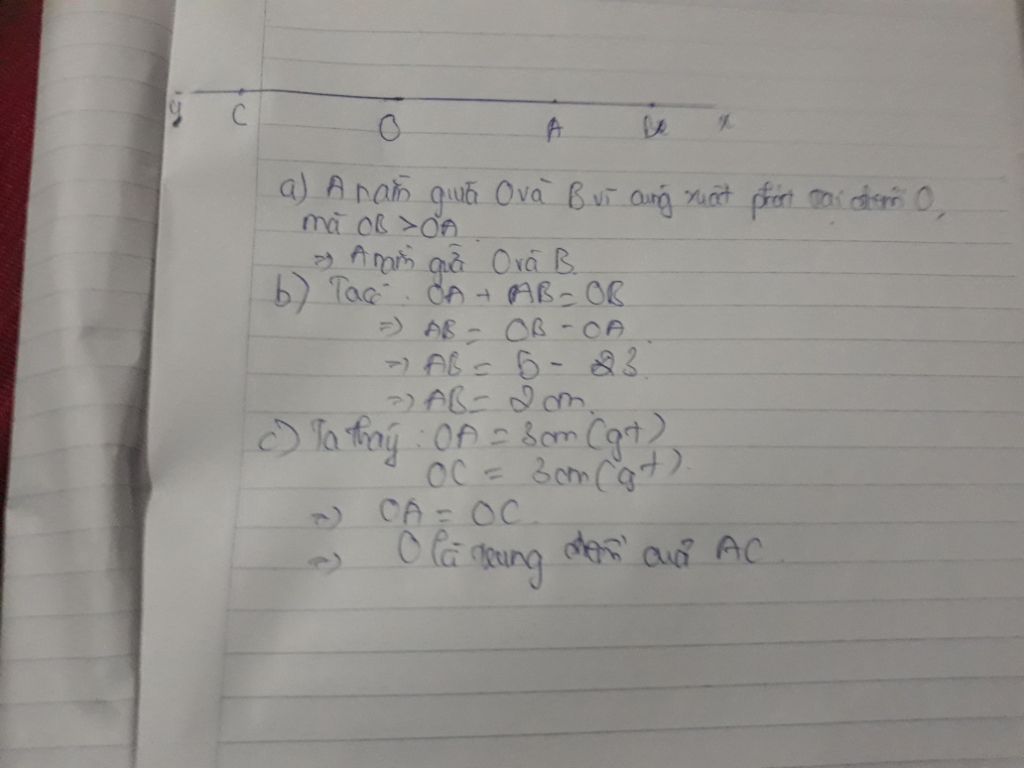 y C O A B x
a) A nằm giữa O và B vì cùng xuất phát tại điểm O,
mà OB > OA
=> A nằm giữa O và B.
b) Ta có: OA + AB = OB
=> AB = OB - OA
=> AB = 5 - 3
=> AB = 2cm.
c) Ta thấy: OA = 3cm (gt)
OC = 3cm (gt).
=> OA = OC.
=> O là trung điểm của AC.